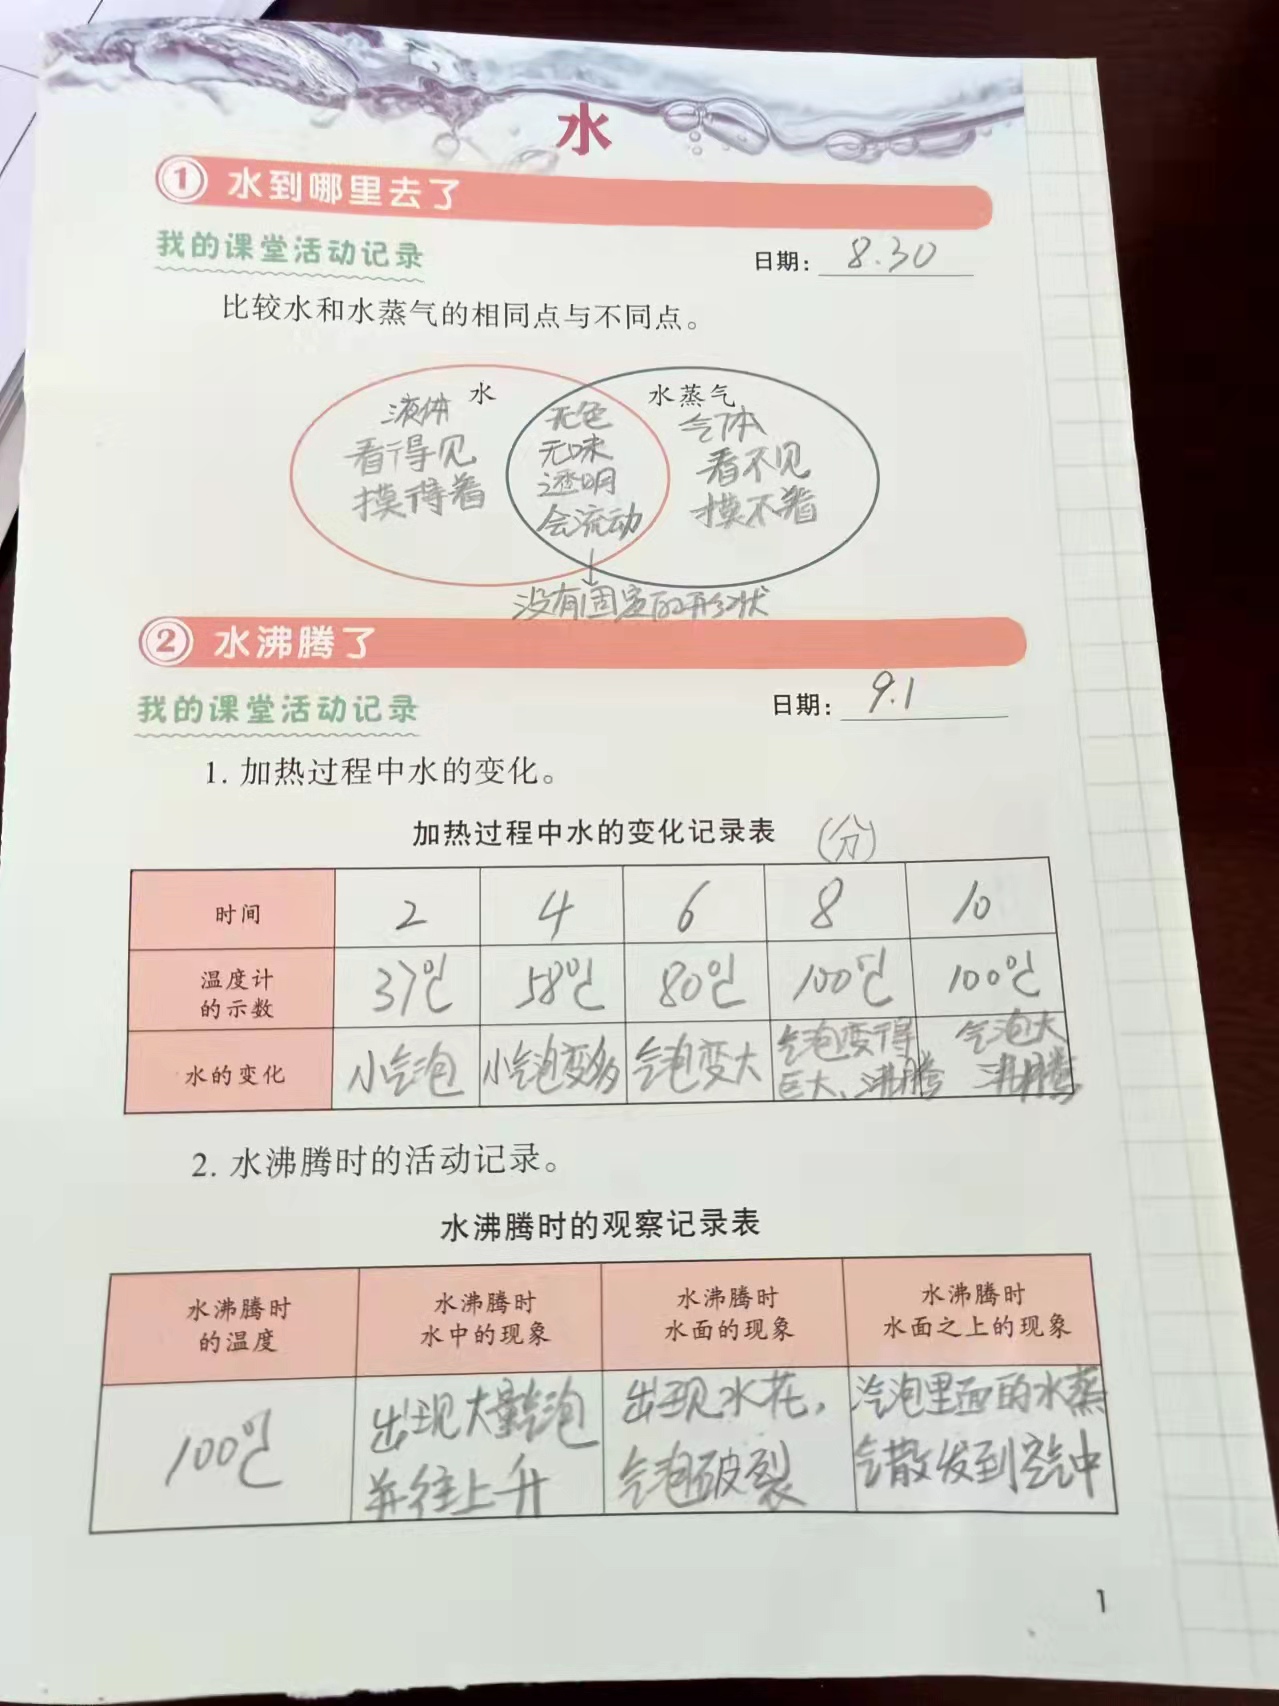 水
1 水到哪里去了
我的课堂活动记录
日期： 8.30
比较水和水蒸气的相同点与不同点。
水
液体
看得见
摸得着
无色
无味
透明
会流动
水蒸气
气体
看不见
摸不着
没有固定的形状
2 水沸腾了
我的课堂活动记录
日期： 9.1
1. 加热过程中水的变化。
加热过程中水的变化记录表 (分)
时间 2 4 6 8 10
温度计
的示数
37℃ 58℃ 80℃ 100℃ 100℃
水的变化
小气泡
小气泡变多
气泡变大
气泡变得
巨大、沸腾
气泡大
沸腾
2. 水沸腾时的活动记录。
水沸腾时的观察记录表
水沸腾时
的温度
水沸腾时
水中的现象
水沸腾时
水面的现象
水沸腾时
水面之上的现象
100℃
出现大量气泡
并往上升
出现水花，
气泡破裂
汽泡里面的水蒸
气散发到空气中
1